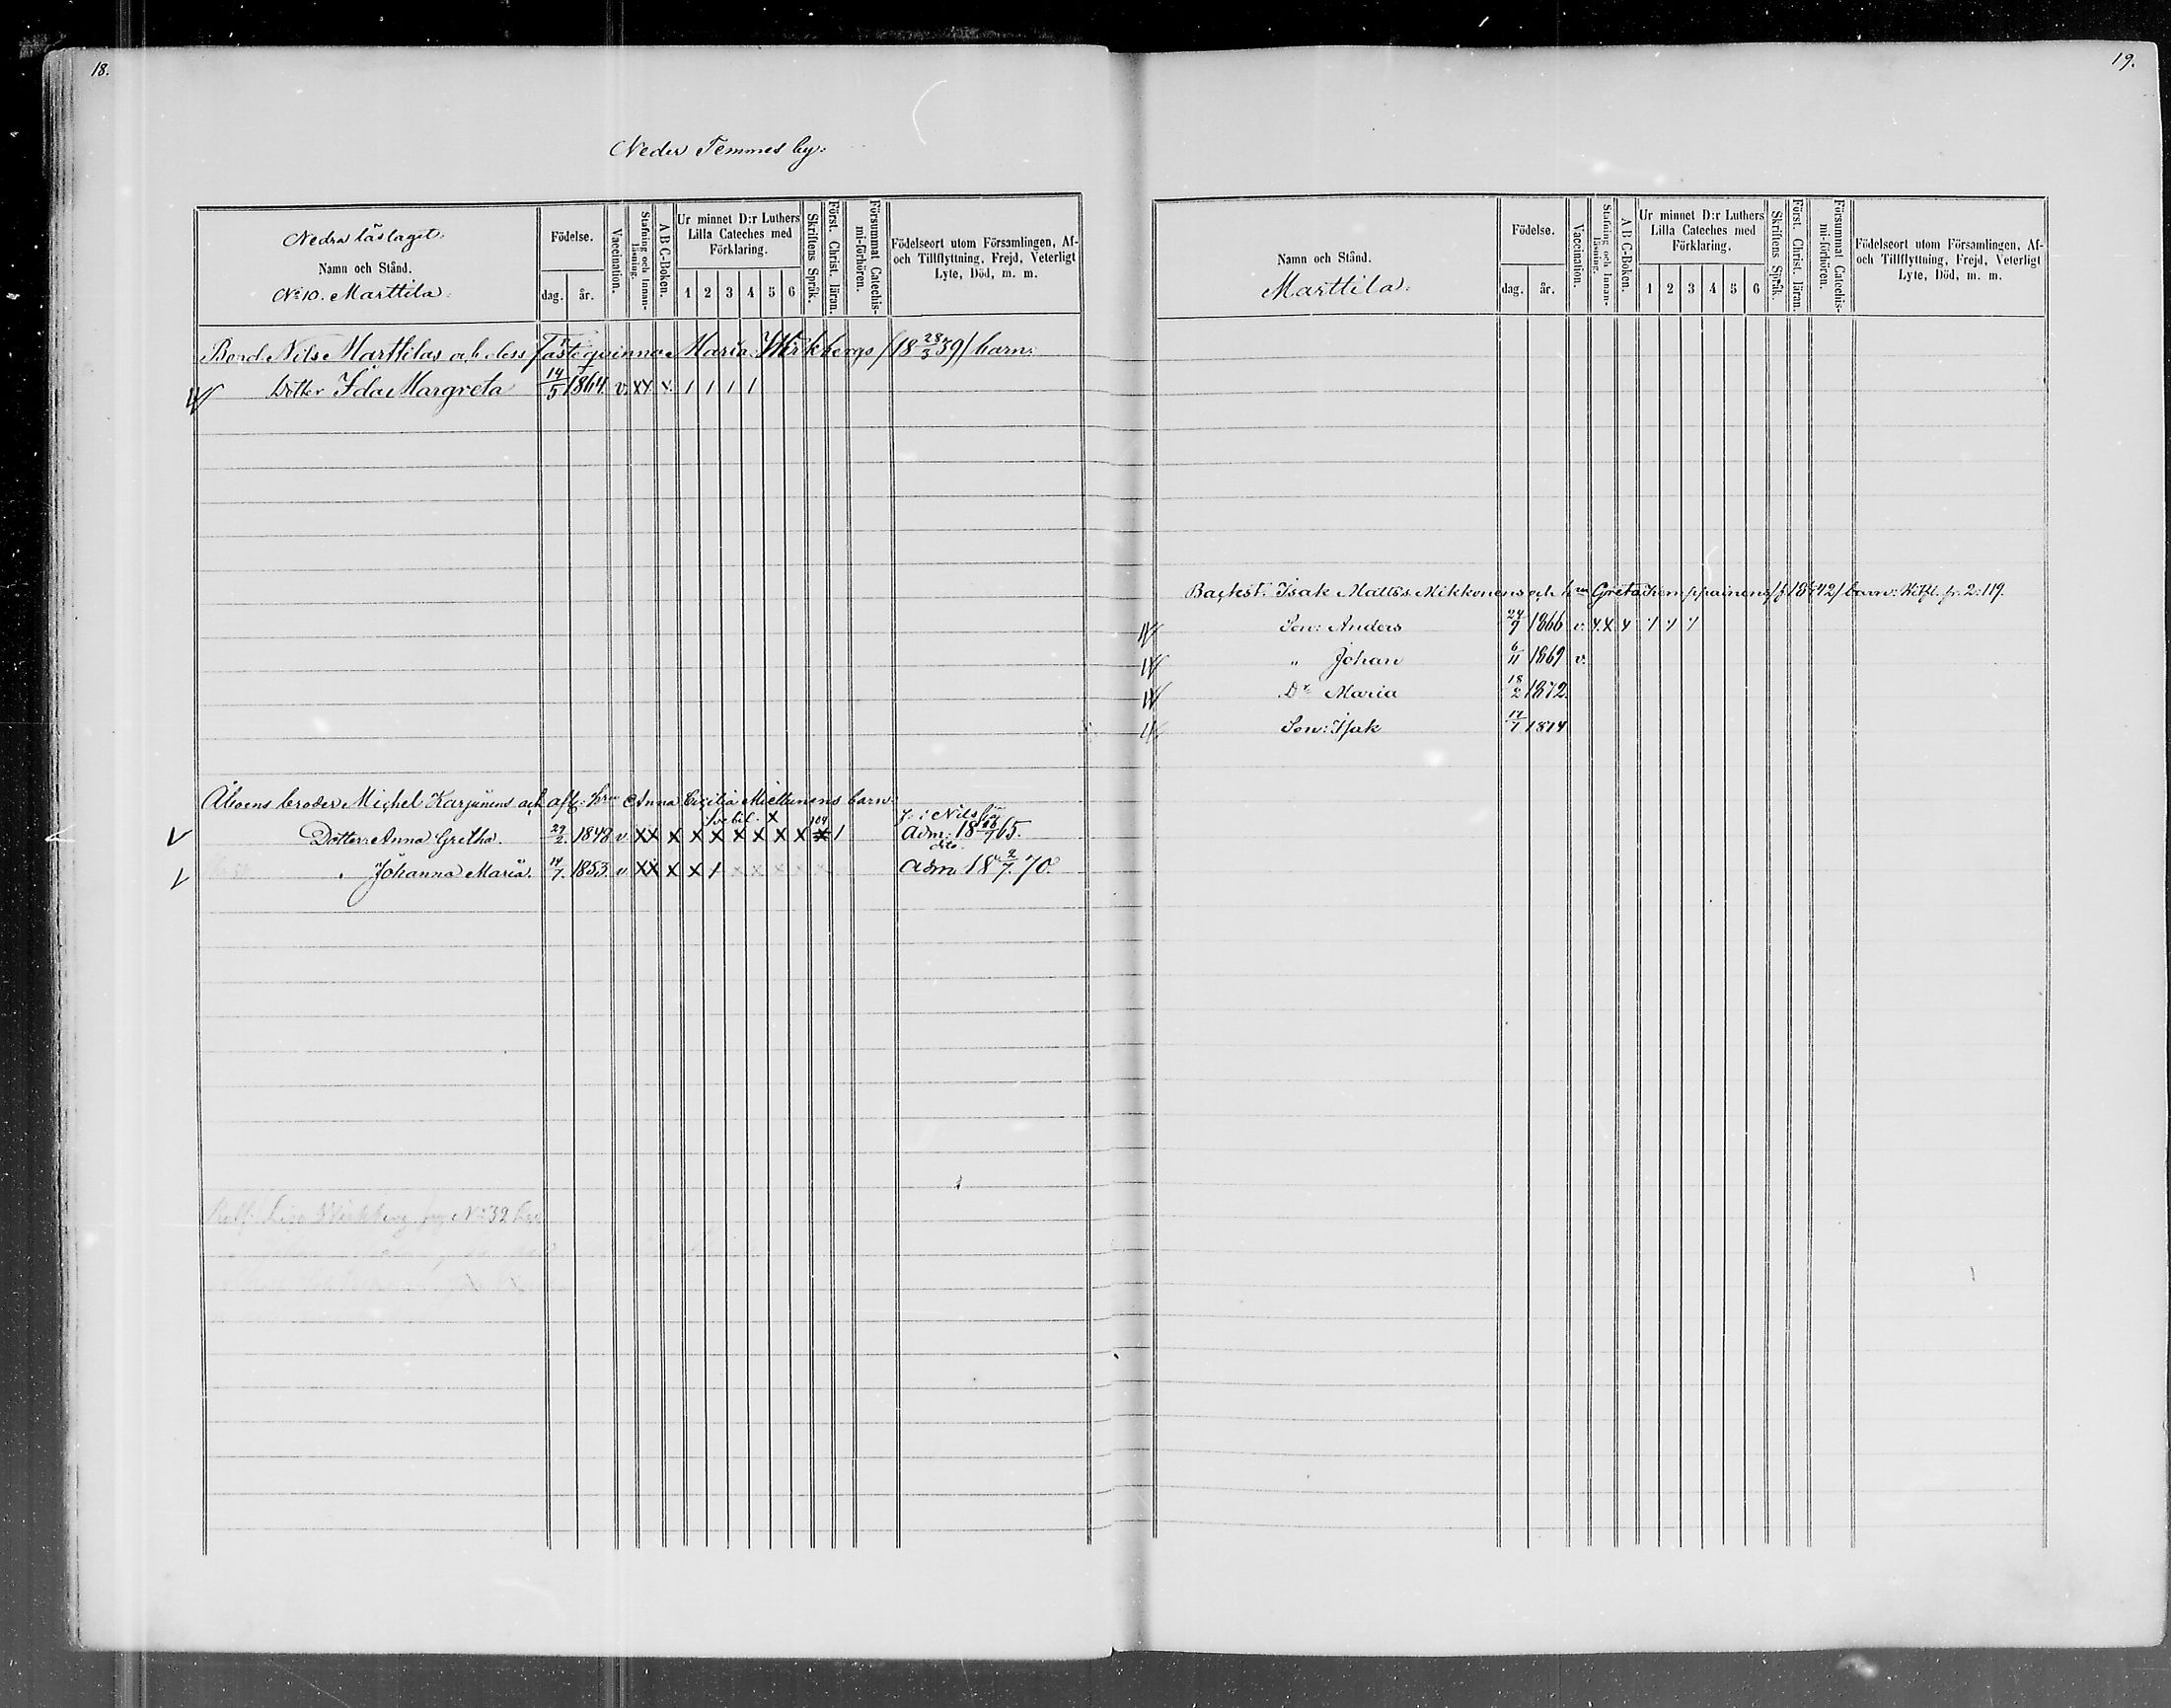 18.
Neder Temmes by:
Nedra läslaget.
Namn och Stånd.
No 10. Marttila.
Födelse.
dag. år.
Vaccination.
Stafning och Innan-läsning.
A B C-Boken.
Ur minnet D:r Luthers Lilla Cateches med Förklaring.
1 2 3 4 5 6
Skriftens Språk.
Först. Christ. läran.
Försummat Catechis-mi-förhören.
Födelseort utom Församlingen, Af- och Tillflyttning, Frejd, Veterligt Lyte, Död, m. m.
Bond. Nils Marttilas och dess fästeqvinna Maria Wirkbergs /18 28/3 39/ barn:
Dotter Ida Margreta 14/5 1864. v. xx x 1 1 1 1
Åboens broder Michel Karjunens och afl. hru Anna Cecilia Miettunens barn:
f. i Nilsiä
Dotter Anna Gretha. 29/2. 1848 v. xx x x x x x x x x 1 Adm. 18 /7 65.
dito
" Johanna Maria. 14/7. 1853. v xx x x 1 Adm. 18 2/7. 70.
No 32
19.
Namn och Stånd.
Marttila.
Födelse.
dag. år.
Vaccination.
Stafning och Innan-läsning.
A B C-Boken.
Ur minnet D:r Luthers Lilla Cateches med Förklaring.
1 2 3 4 5 6
Skriftens Språk.
Först. Christ. läran.
Försummat Catechis-mi-förhören.
Födelseort utom Församlingen, Af- och Tillflyttning, Frejd, Veterligt Lyte, Död, m. m.
Backst. Isak Matts s. Mikkonens och hru Greta Kemppainens barn: fr. 2:119.
Son: Anders 24/9 1866 v. x.x x 1 1 1
" Johan 6/11 1869 v.
Dr Maria 18/2 1872.
Son: Isak 17/7 1874